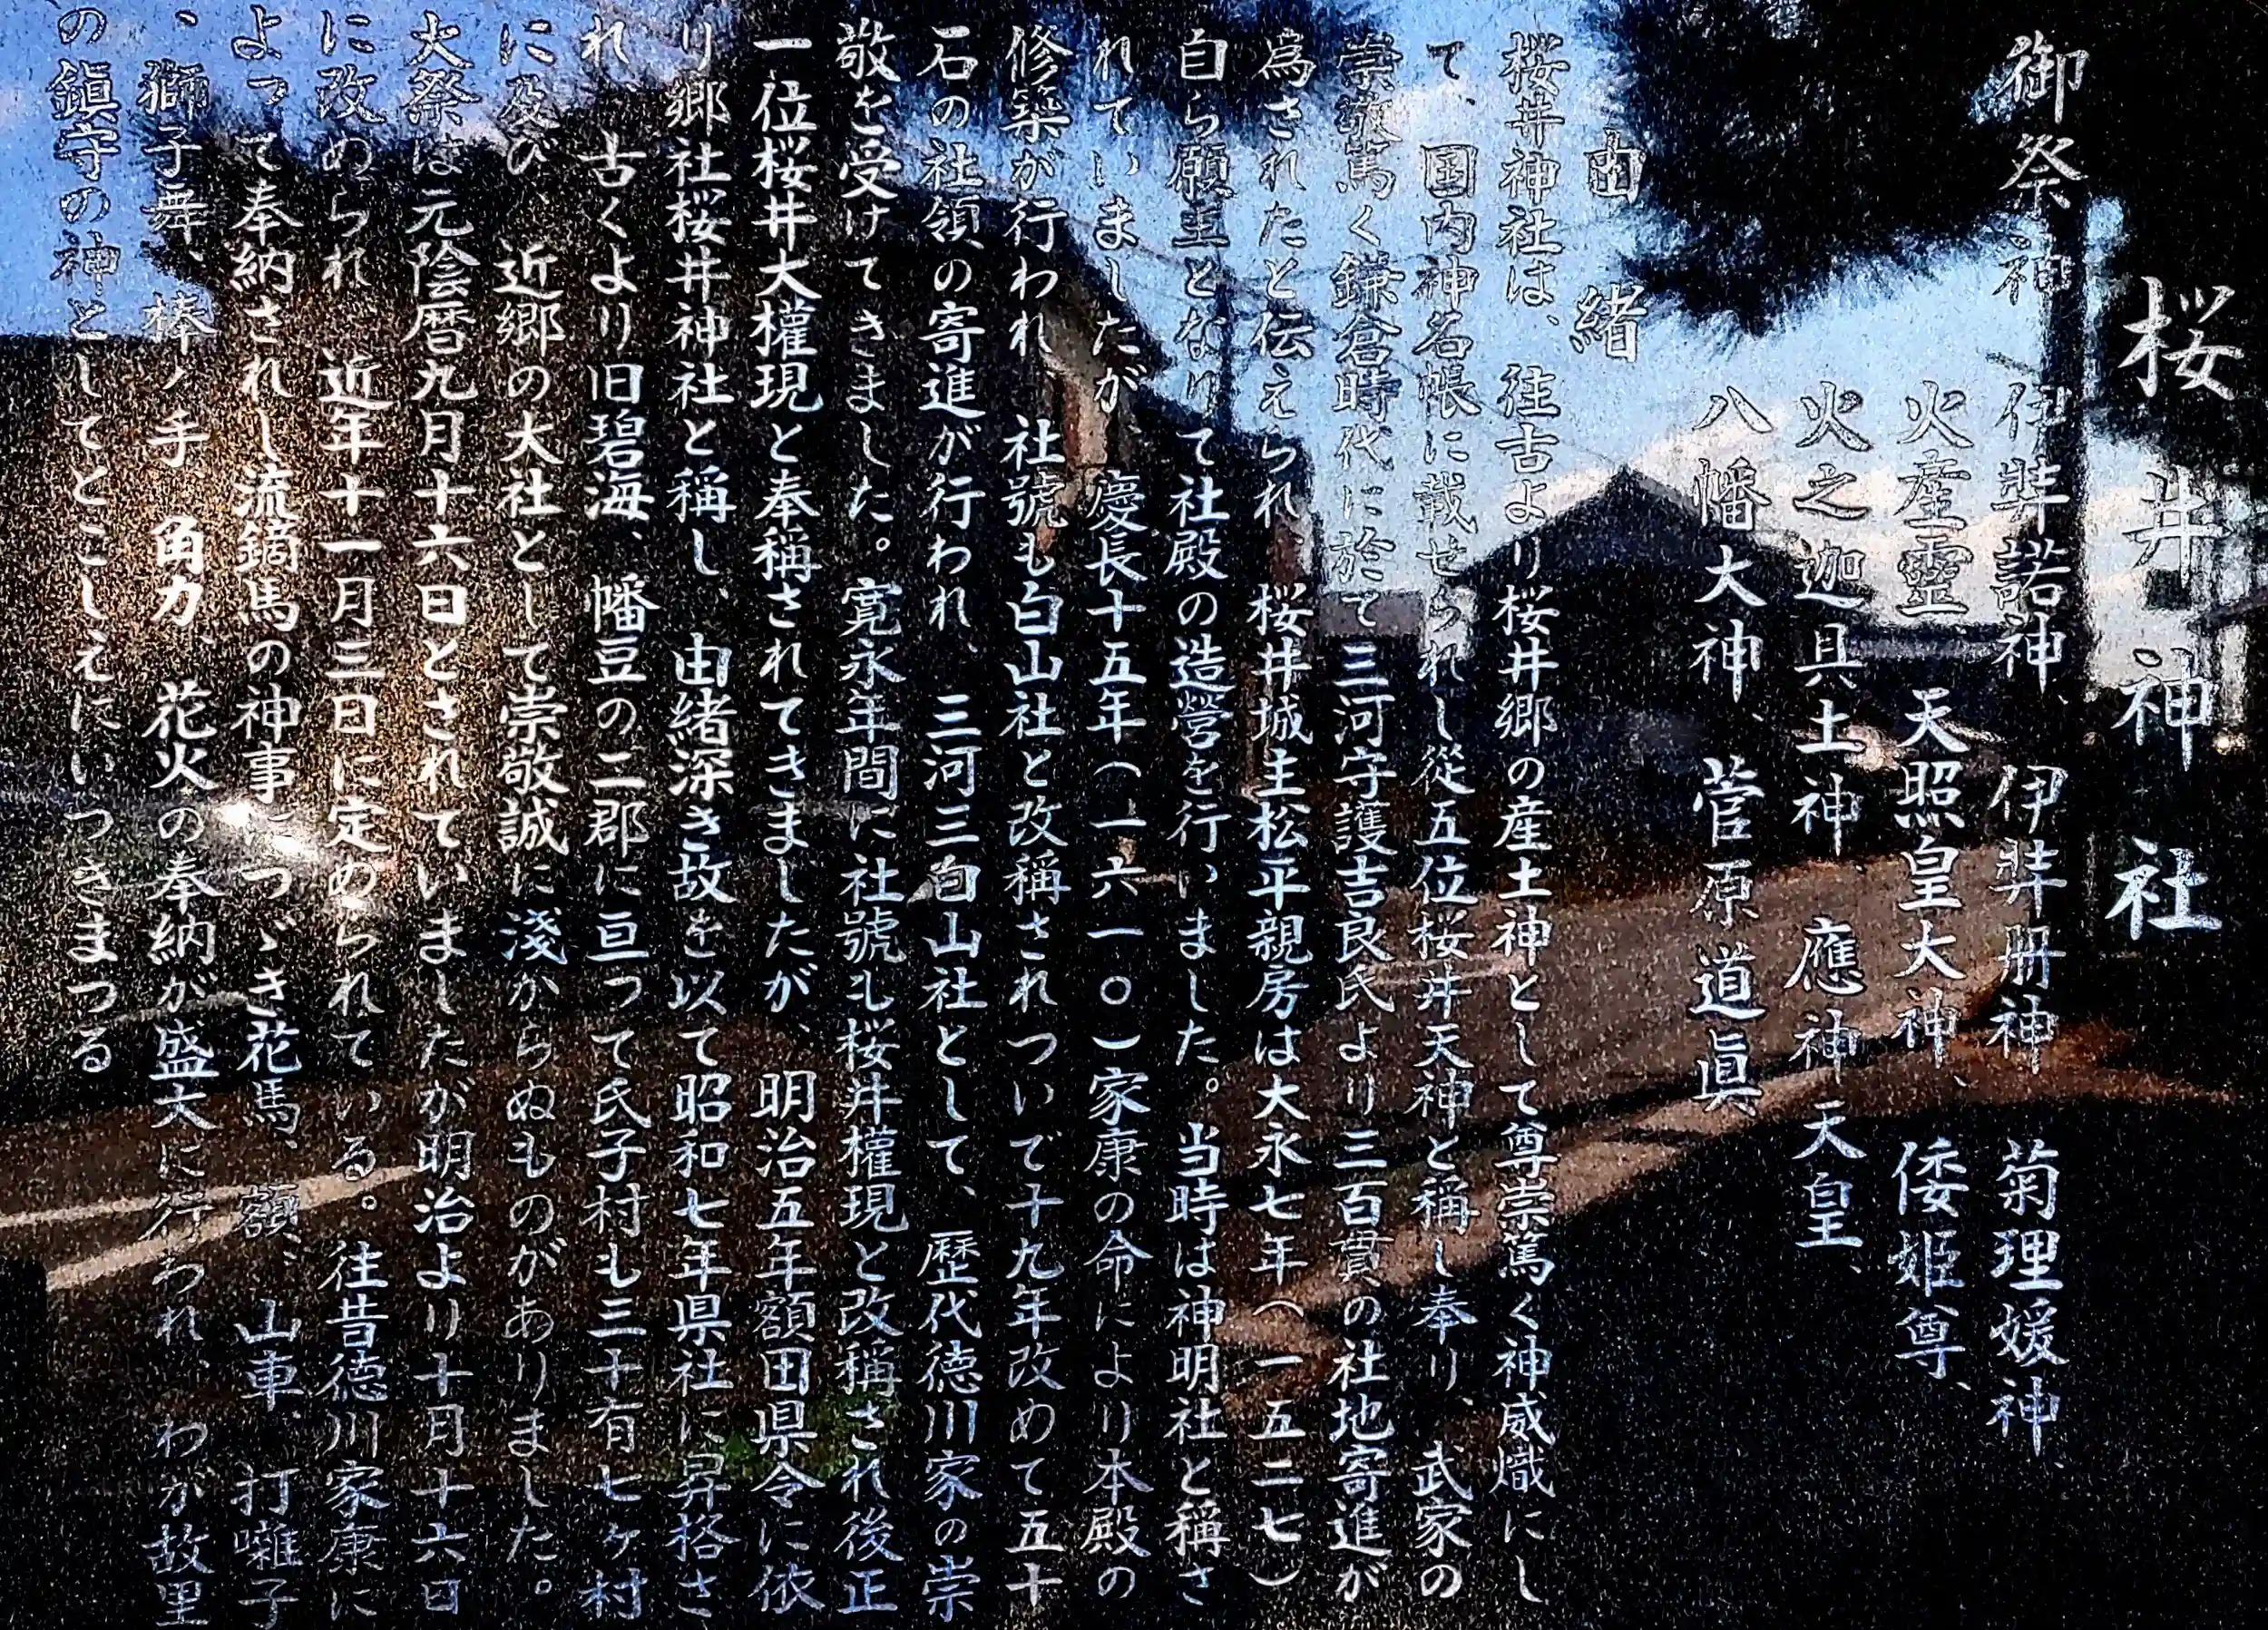 桜井神社
御祭神
伊弉諾神、伊弉冊神、菊理媛神、
火産霊、天照皇大神、倭姫尊、
火之迦具土神、應神天皇、
八幡大神、菅原道眞
由緒
桜井神社は、往古より桜井郷の産土神として尊崇篤く神威熾にし
て、国内神名帳に載せられし從五位桜井天神と稱し奉り、武家の
崇敬篤く鎌倉時代に於て三河守護吉良氏より三百貫の社地寄進が
為されたと伝えられ、桜井城主松平親房は大永七年(一五二七)
自ら願主となりて社殿の造營を行いました。当時は神明社と稱さ
れていましたが、慶長十五年(一六一〇)家康の命により本殿の
修築が行われ、社號も白山社と改稱されついで十九年改めて五十
石の社領の寄進が行われ、三河三白山社として、歴代徳川家の崇
敬を受けてきました。寛永年間に社號も桜井權現と改稱され後正
一位桜井大權現と奉稱されてきましたが、明治五年額田県令に依
り郷社桜井神社と稱し、由緒深き故を以て昭和七年県社に昇格さ
れ、古くより旧碧海、幡豆の二郡に亘って氏子村も三十有七ヶ村
に及び、近郷の大社として崇敬誠に淺からぬものがありました。
大祭は元陰暦九月十六日とされていましたが明治より十月十六日
に改められ、近年十一月三日に定められている。往昔徳川家康に
よって奉納されし流鏑馬の神事につゞき花馬、額、山車、打囃子
、獅子舞、棒ノ手、角力、花火の奉納が盛大に行われ、わが故里
の鎭守の神としてとこしえにいつきまつる